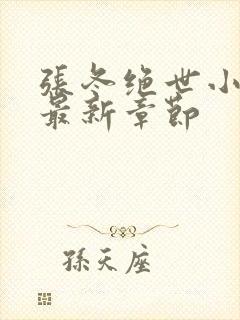 張冬绝世小
最新章節
孫天座